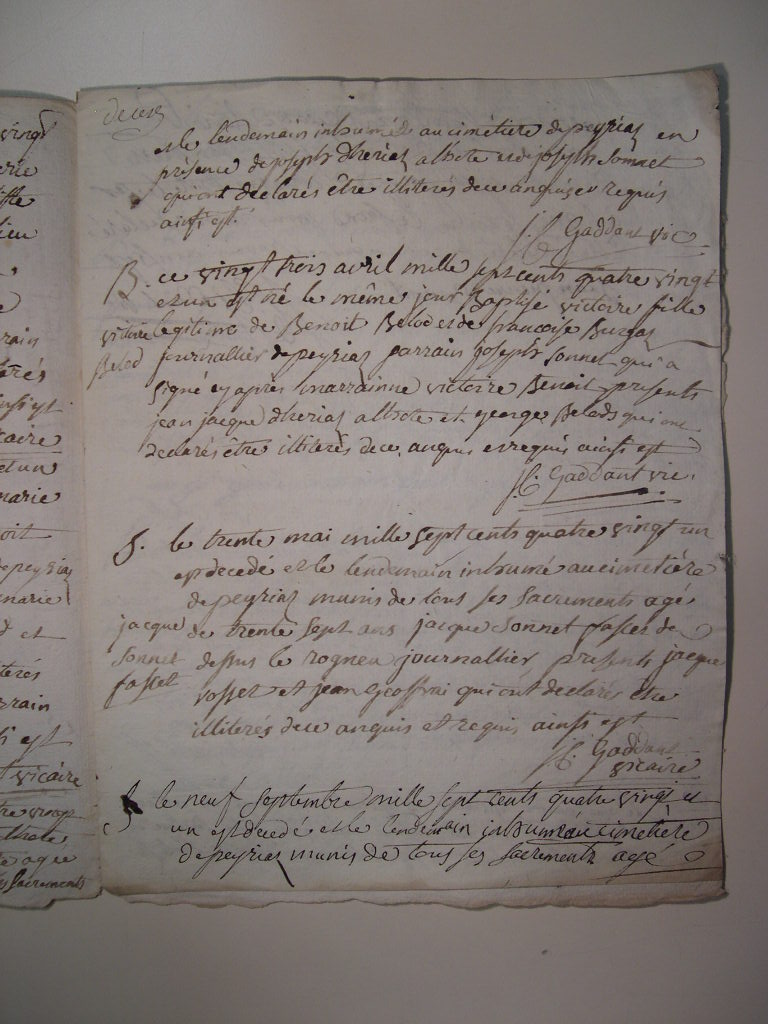 vingt
arie
lieu
rain
arés
ainsi est
caire
et un
marie
noit
de peyrias
marie
d et
terés
rrain
si est
vicaire
tre vingt
age
ses sacrements
deces
et le lendemain inhumé au cimetiere de peyrias en
présence de joseph dherias albote et de joseph sonnet
qui ont declarés être illiterés de ce enquis et requis
ainsi est.
Gaddant vic
B. ce vingt trois avril mille sept cents quatre vingt
et un est né le même jour Baptisé victoire fille
victoire legitime de Benoit Belod et de francoise Burgas
Belod journallier de peyrias parrain joseph sonnet qui a
signé cy apres marrainne victoire Benoit presents
jean jacque dherias albote et george Belods qui ont
declarés être illiterés de ce enquis et requis ainsi est
Gaddant vic.
S. le trente mai mille sept cents quatre vingt un
est decedé et le lendemain inhumé au cimetiére
de peyrias munis de tous ses sacrements agé
jacque de trente sept ans jacque sonnet fasset de
sonnet dessus le rogneu journallier presents jacque
fasset vosset et jean geoffrai qui ont declarés être
illiterés de ce enquis et requis ainsi est
Gaddant
vicaire
S le neuf septembre mille sept cents quatre vingt et
un est decedé et le lendemain inhumé au cimetiére
de peyrias munis de tous ses sacrements agé